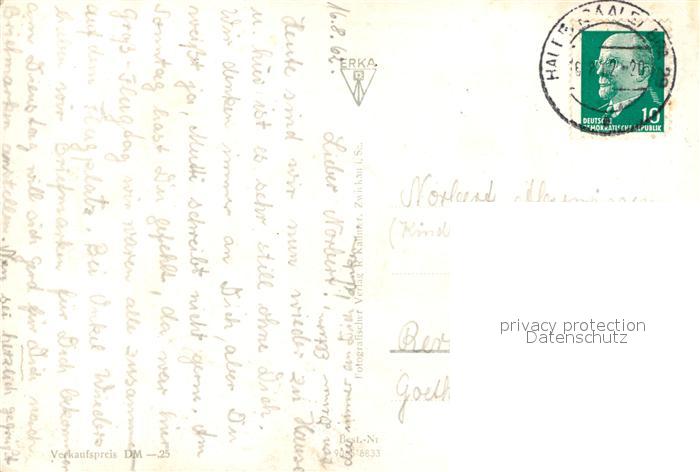 16.8.62.
Lieber Norbert!
Heute sind wir nun wieder zu Hause
u. hier ist es sehr still ohne Dich.
Wir denken immer an Dich, aber Du
weißt ja, Mutti schreibt nicht gern. Am
Sonntag hast Du gefehlt, da war hier
Groß Flugtag wir waren alle zusammen
auf dem Flugplatz. Bei Onkel Wieders
haben wir Briefmarken für Dich bekommen
am Dienstag will sich Gerd für Dich nach
Briefmarken anstellen. Nun sei herzlich gegrüßt
alle immer an Dich denken
ERKA
Fotografischer Verlag R. Kallmer, Zwickau i. Sa.
Best.-Nr
8833
Verkaufspreis DM —.25
HALLE (SAALE)
DEUTSCHE
DEMOKRATISCHE REPUBLIK
10
Norbert
(Kind
Ber
Goeth
privacy protection
Datenschutz